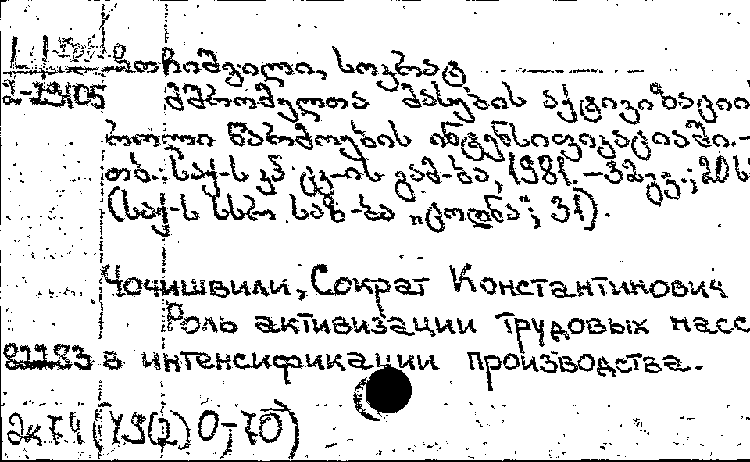 ჩოჩიშვილი, სოკრატ
მშრომელთა მასების აქტივიზაციის
როლი წარმოების ინტენსიფიკაციაში.-
თბ.: საქ-ს კპ ცკ-ის გამ-ბა, 1981.-32გვ.; 20ს
(საქ-ს სსრ საზ-ბა „ცოდნა“; 31).
Чочишвили, Сократ Константинович
Роль активизации трудовых масс
81183 в интенсификации производства.